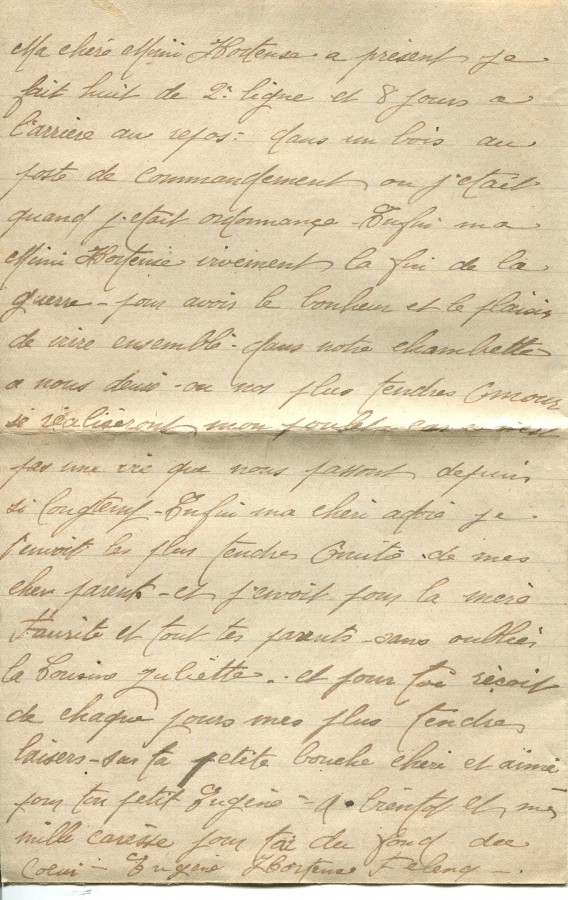 Ma chère Mimi Hortense a présent je
fait huit de 2e ligne et 8 jours a
l'arrière au repos - dans un bois au
poste de commandement ou j'etait
quand j'etait ordonnance - Enfin ma
Mimi Hortense vivement la fin de la
guerre - pour avoir le bonheur et le plaisir
de vivre ensemble - dans notre chambette
a nous deux - ou nos plus tendres Amour
se réaliseront mon poulet car ce n'est
pas une vie que nous passont depuis
si longtemp - Enfin ma cheri adoré je
t'envoit les plus tendres Amitié de mes
cher parents - et j'envoit pour la mère
Faurite et tout tes parents - sans oublier
la Cousine Juliette - et pour toi reçoit
de chaque jours mes plus tendres
baisers - sur ta petite bouche cheri et aimé
pour ton petit Eugène - A bientot et mes
mille caresse pour toi du fond du
Coeur - Eugène Hortense Felenq -.